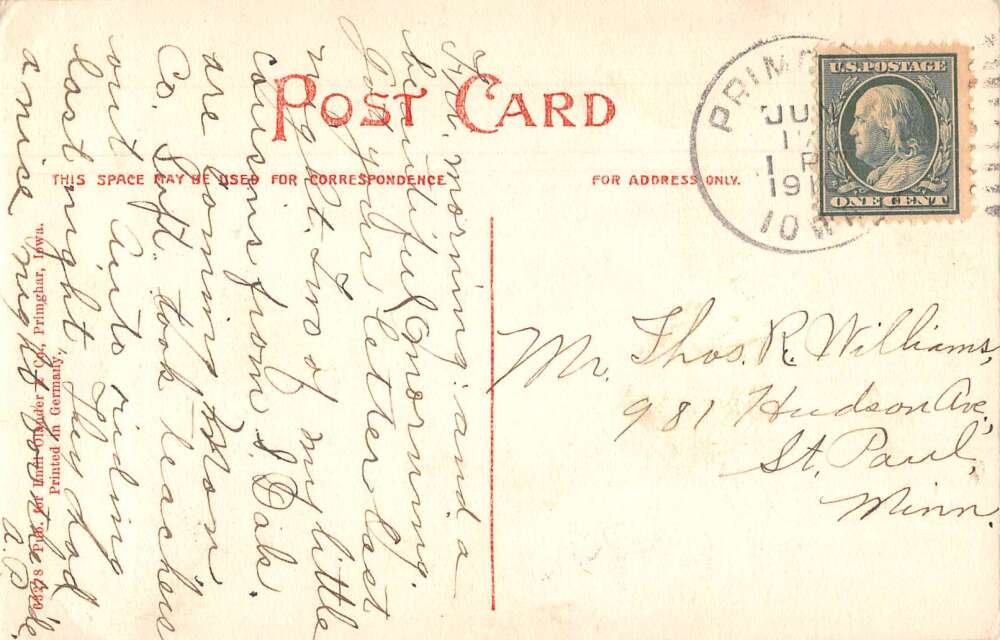 POST CARD
THIS SPACE MAY BE USED FOR CORRESPONDENCE
FOR ADDRESS ONLY.
morning: and a
beautiful morning.
Got your letter last
night. Two of my little
cousins from S. Dak.
are coming Mon
Co. Supt. took teachers
out Auto riding
last night. They had
a nice night for the ride.
A. B.
Pub. for & Co., Primghar, Iowa.
Printed in Germany.
PRIM
JU
1 P
191
IOWA
U.S. POSTAGE
ONE CENT
Mr. Thos. R. Williams,
981 Hudson Ave,
St. Paul,
Minn.